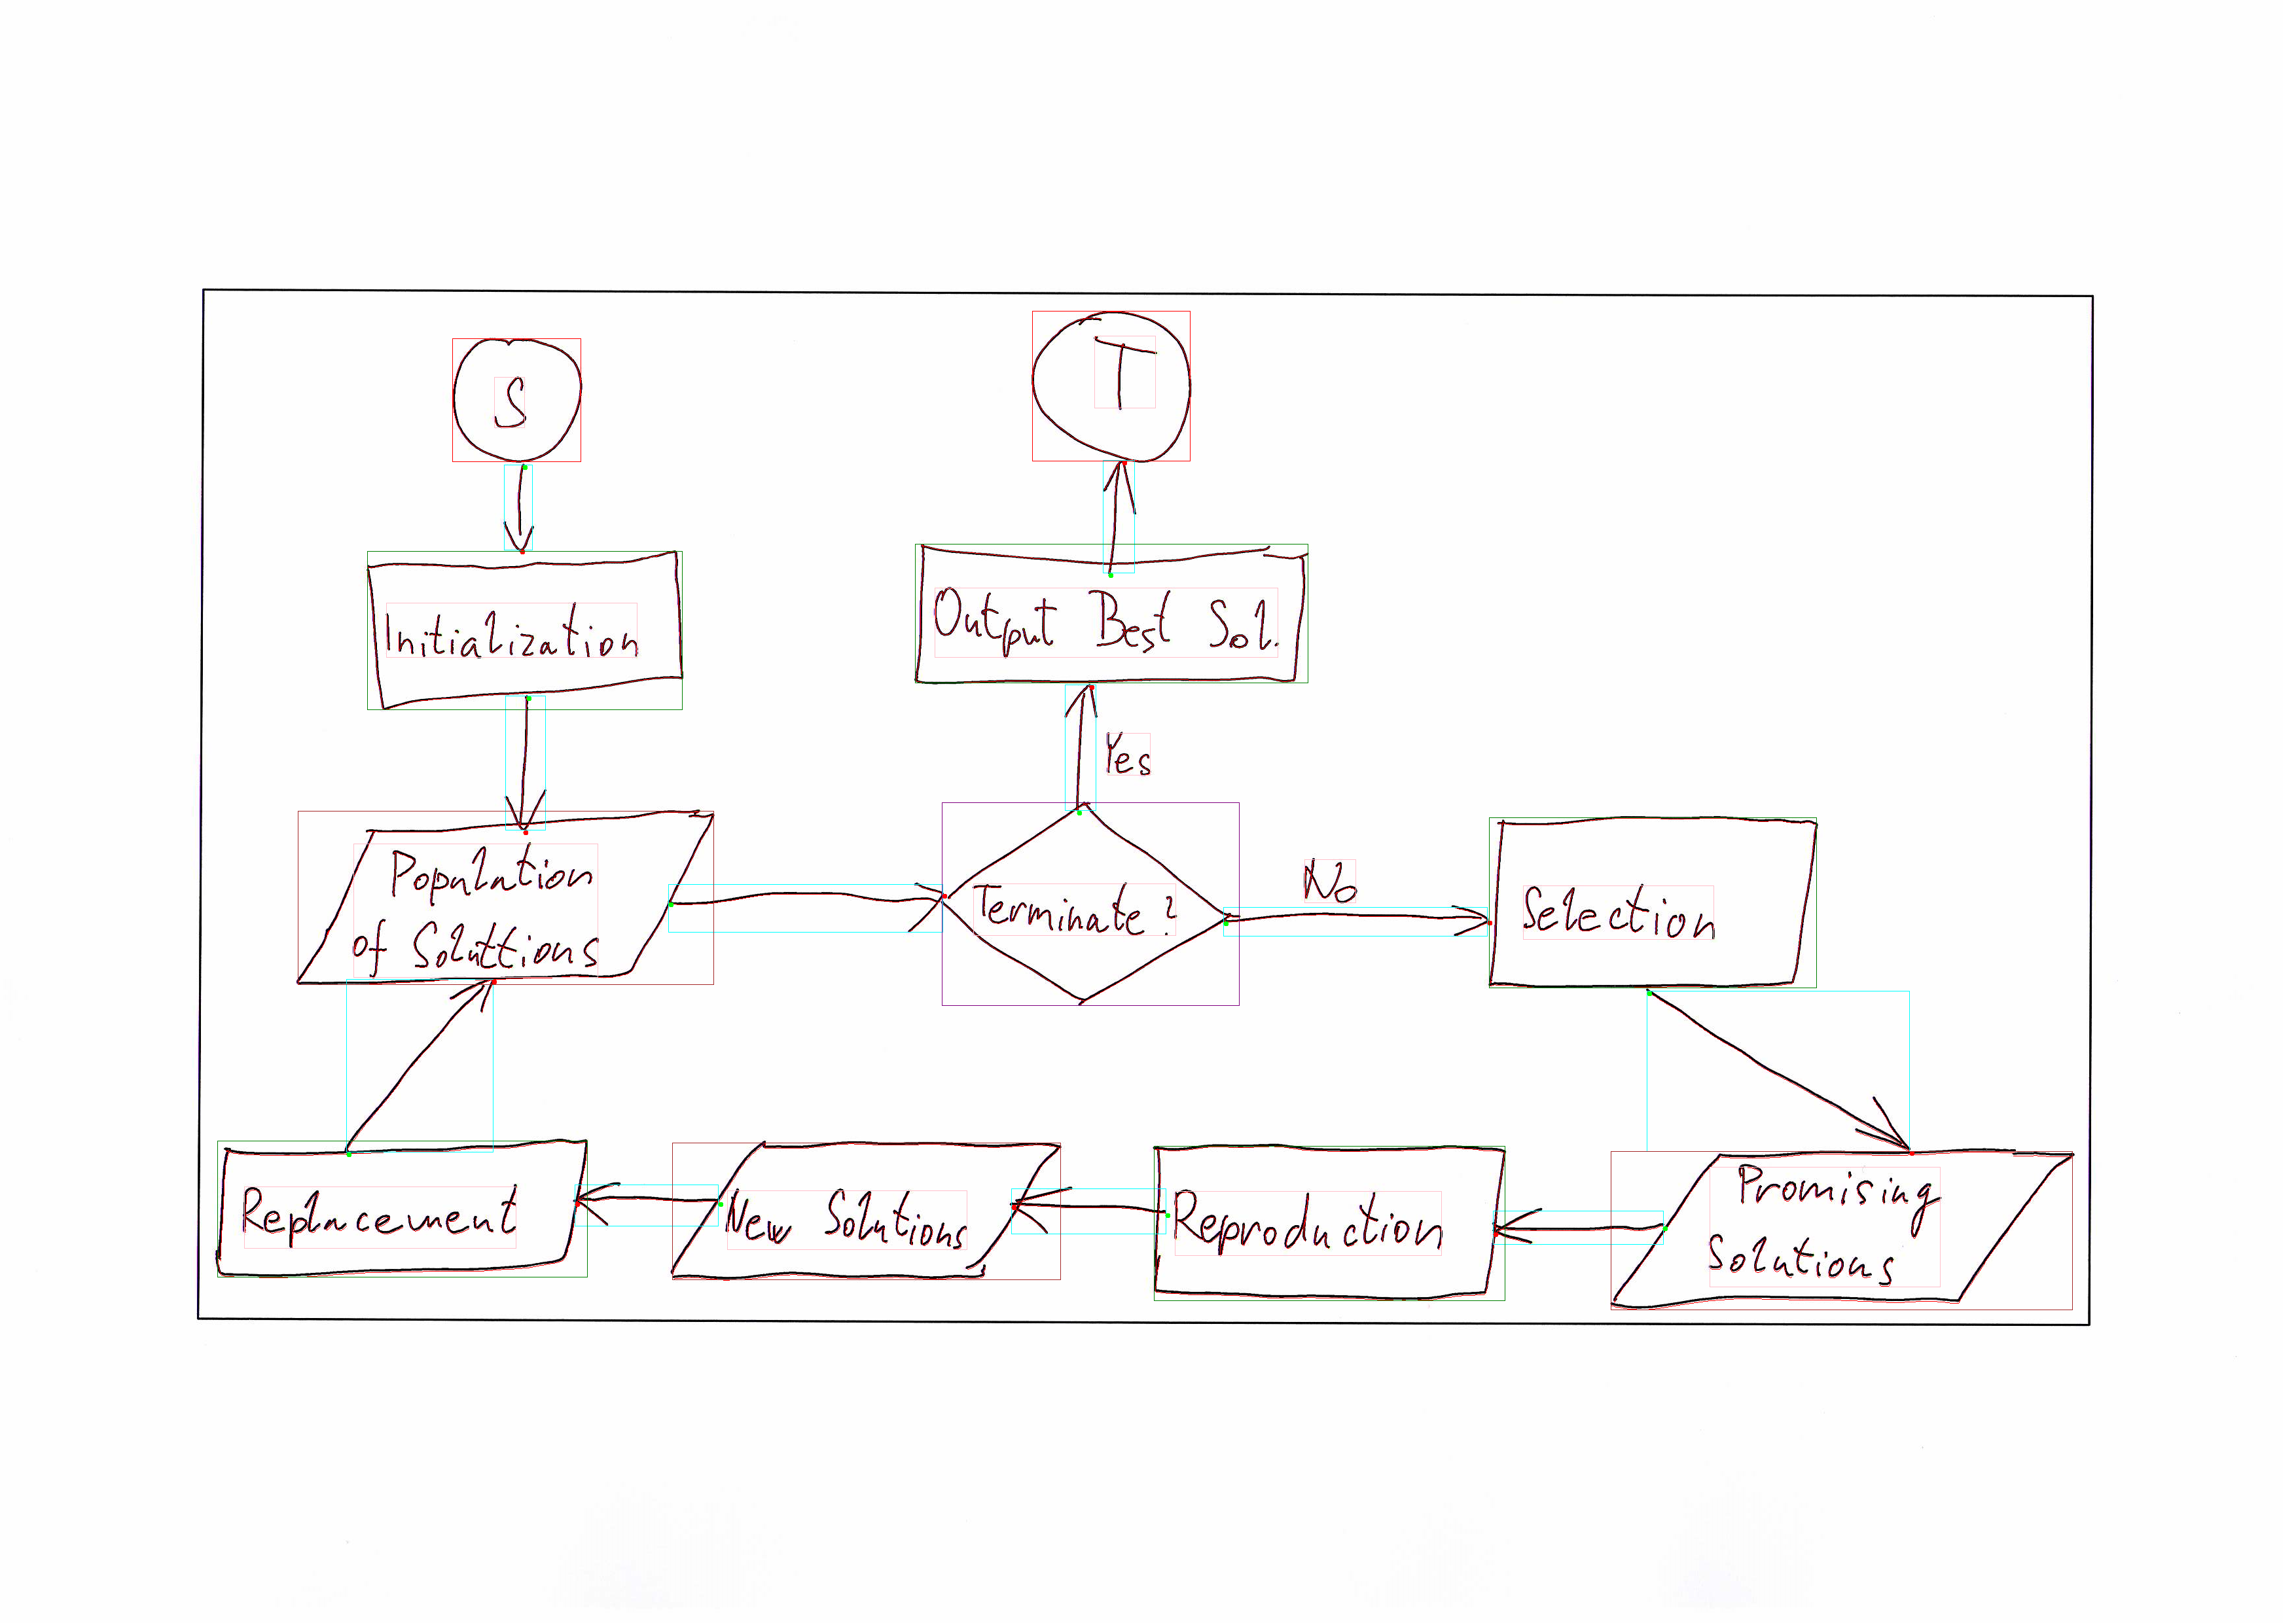 S
T
Initialization
Output Best Sol.
Yes
Population
of Soluttions
Terminate?
No
Selection
Replacement
New Solutions
Reproduction
Promising
Solutions